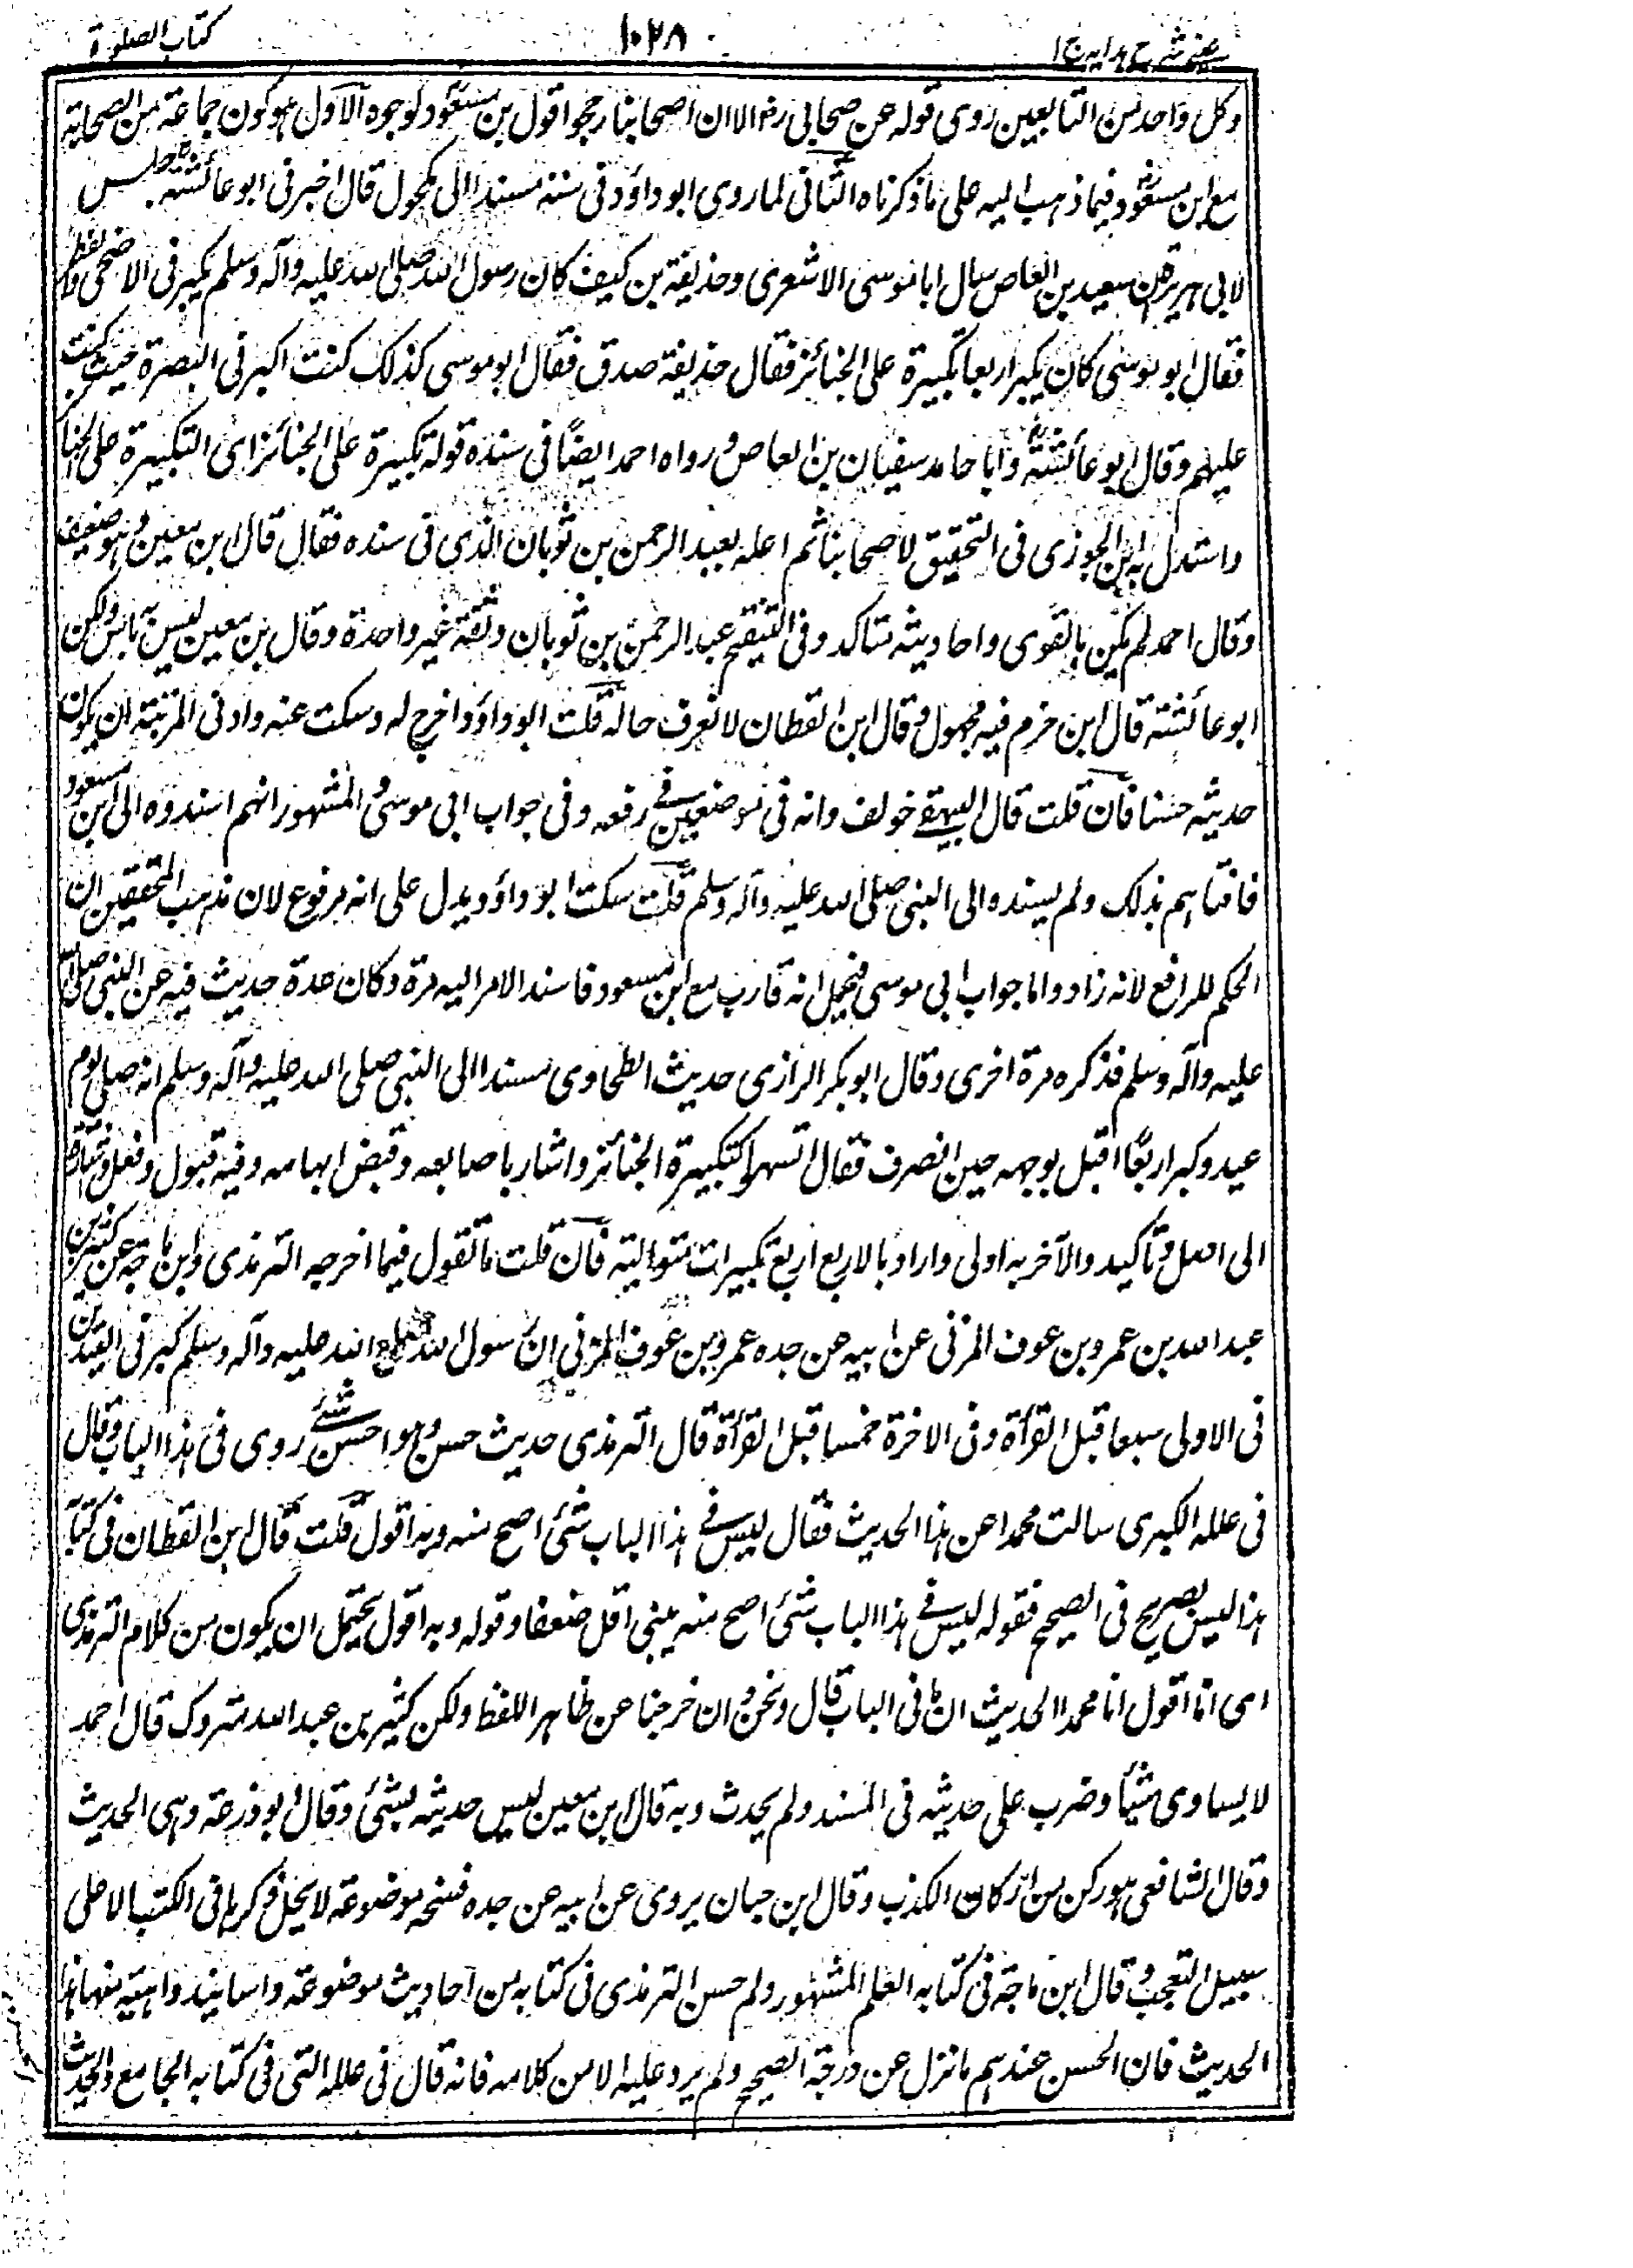 عينى شرح هدايه ج ا
١٠٢٨
كتاب الصلوة
وكل واحد من التابعين روى قوله عن صحابى رض الا ان اصحابنا رجحوا قول بن مسعود لوجوه الاول هو كون جماعة من الصحابة
مع ابن مسعود فيما ذهب اليه على ما ذكرناه الثانى لما روى ابو داؤد فى سننه مسندا الى مكحول قال اخبرنى ابو عائشة جليس
لابى هريرة ان سعيد بن العاص سال ابا موسى الاشعرى وحذيفة بن كيف كان رسول الله صلى الله عليه وآله وسلم يكبر فى الاضحى والفطر
فقال ابو موسى كان يكبر اربعا تكبيرة على الجنائز فقال حذيفة صدق فقال ابو موسى كذلك كنت اكبر فى البصرة حيث كنت
عليهم وقال ابو عائشة وابا حامد سفيان بن العاص ورواه احمد ايضًا فى سنده قوله تكبيرة على الجنائز اى التكبيرة على الجنا
واستدل به ابن الجوزى فى التحقيق لاصحابنا ثم اعله بعبد الرحمن بن ثوبان الذى فى سنده فقال قال ابن معين وهو ضعيف
وقال احمد لم يكن بالقوى واحاديثه مناكد وفى التنقيح عبد الرحمن بن ثوبان وثقة غير واحدة وقال بن معين ليس به باس ولكن
ابو عائشة قال ابن حزم فيه مجهول وقال ابن القطان لا نعرف حاله قلت ابو داؤد اخرج له وسكت عنه وادنى المرتبة ان يكون
حديثه حسنا فان قلت قال البيهقى خولف وانه فى موضعين فى رفعه وفى جواب ابى موسى والمشهور انهم اسندوه الى ابن مسعود
فافتاهم بذلك ولم يسنده الى النبى صلى الله عليه وآله وسلم قلت سكت ابو داؤد يدل على انه مرفوع لان مذهب المحققين ان
الحكم للرافع لانه زاد واما جواب ابى موسى فيحمل انه قارب مع ابن مسعود فاسند الامر اليه مرة وكان عدة حديث فيه عن النبى صلى الله
عليه وآله وسلم فذكره مرة اخرى وقال ابو بكر الرازى حديث الطحاوى مسندا الى النبى صلى الله عليه وآله وسلم انه صلى يوم
عيد وكبر اربعًا اقبل بوجهه حين انصرف فقال اتسهوا كتكبيرة الجنائز واشار باصابعه وقبض ابهامه وفيه قبول وفعل واشارة
الى اصل وتاكيد والآخر به اولى واراد بالاربع اربع تكبيرات متوالية فان قلت ما تقول فيما اخرجه الترمذى وابن ماجة عن كثير بن
عبد الله بن عمرو بن عوف المزنى عن ابيه عن جده عمرو بن عوف المزنى ان رسول الله صلى الله عليه وآله وسلم كبر فى العيدين
فى الاولى سبعا قبل القرأة وفى الاخرة خمسا قبل القرأة قال الترمذى حديث حسن وهو احسن شئى روى فى هذا الباب وقال
فى علله الكبرى سالت محمدا عن هذا الحديث فقال ليس فى هذا الباب شئ اصح منه وبه اقول قلت قال ابن القطان فى كتابه
هذا ليس بصريح فى الصحيح فقوله ليس فى هذا الباب شئ اصح منه يبنى اقل ضعفا وقوله وبه اقول يحتمل ان يكون من كلام الترمذى
اى انا اقول انا محمدا الحديث ان ما فى الباب قال ونحن وان خرجنا عن ظاهر اللفظ ولكن كثير بن عبد الله متروك قال احمد
لا يساوى شيأ وضرب على حديثه فى المسند ولم يحدث وبه قال ابن معين ليس حديثه بشئ وقال ابو ذرعة وهى الحديث
وقال الشافعى هو ركن من اركان الكذب وقال ابن حبان يروى عن ابيه عن جده فنسخه موضوعة لا يحل ذكرها فى الكتب الا على
سبيل التعجب وقال ابن ماجة فى كتابه العلم المشهور ولم حسن الترمذى فى كتابه من احاديث موضوعة واسانيد واهية منها هذا
الحديث فان الحسن عندهم ما نزل عن درجة الصحيح ولم يرد عليه الا من كلامه فانه قال فى علله التى فى كتابه الجامع والحديث